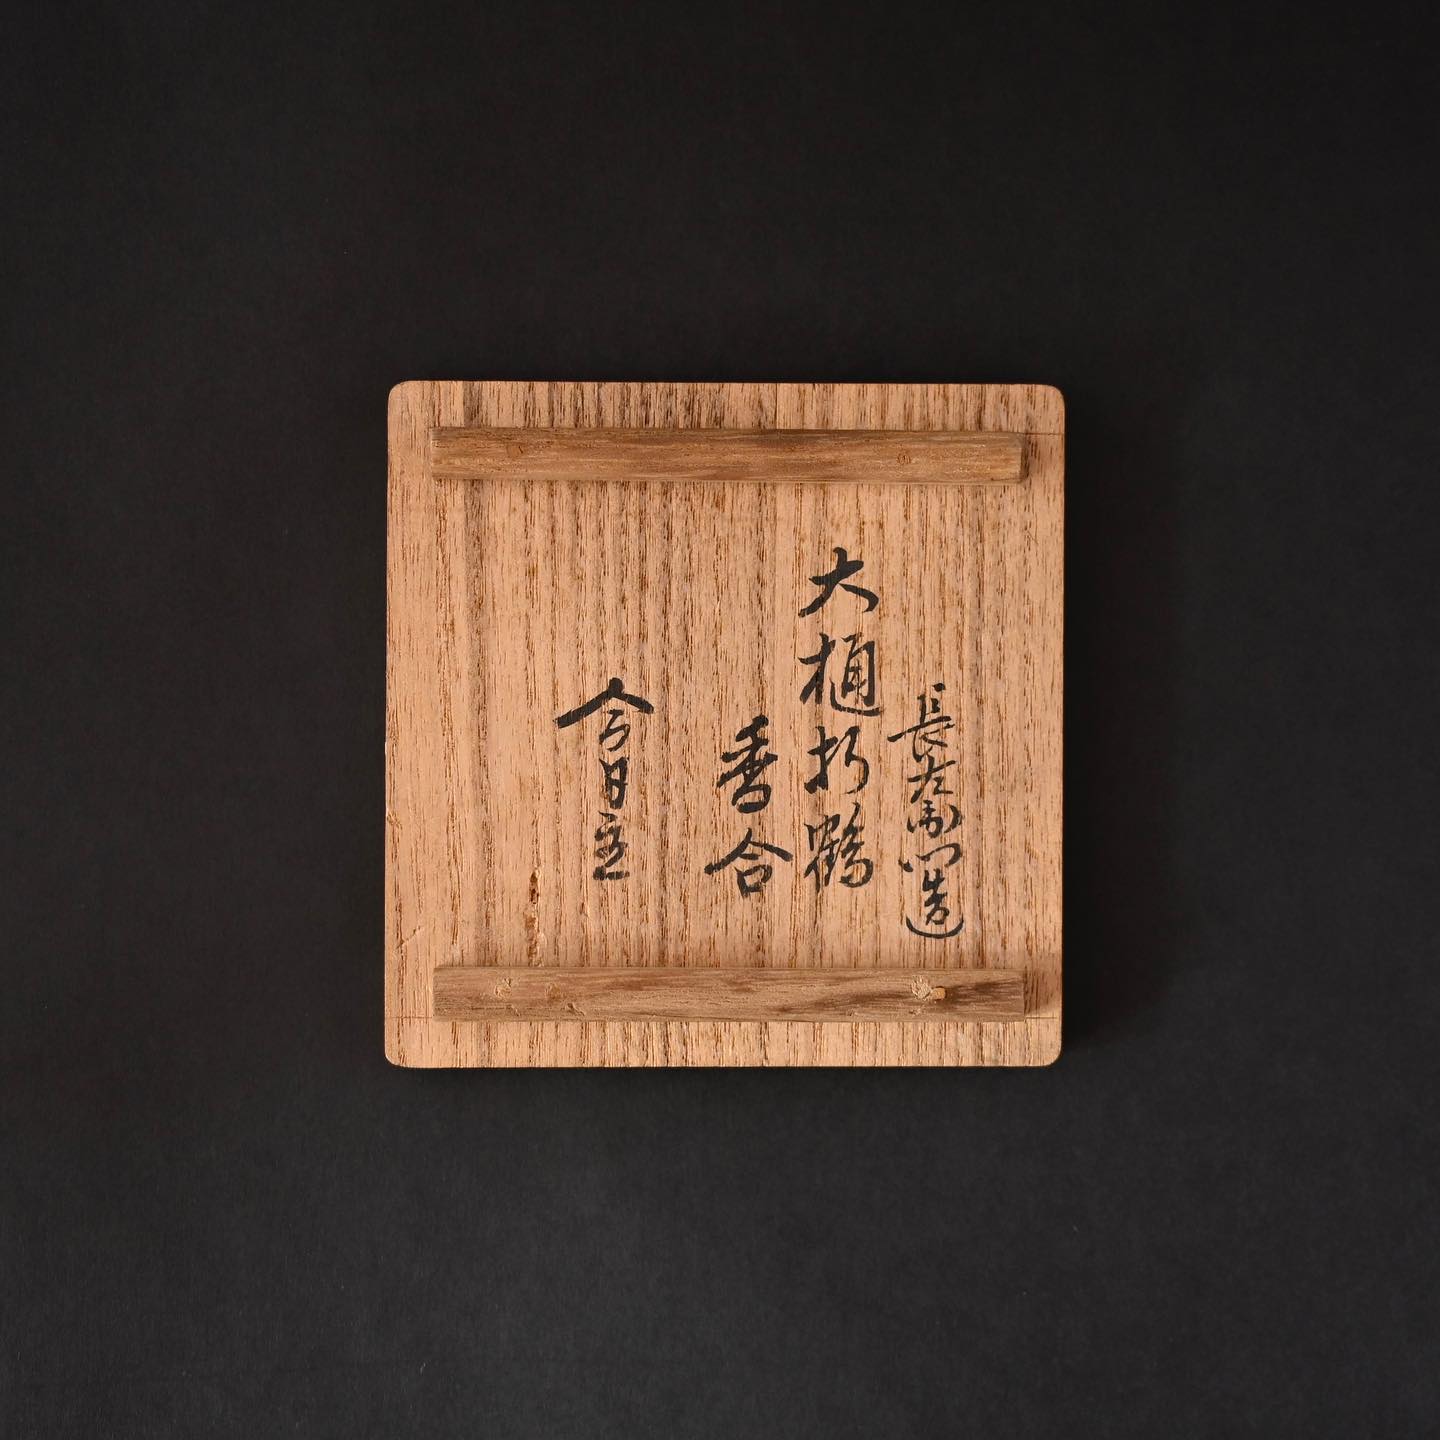 長左衛門造
大樋折鶴
香合
今日主